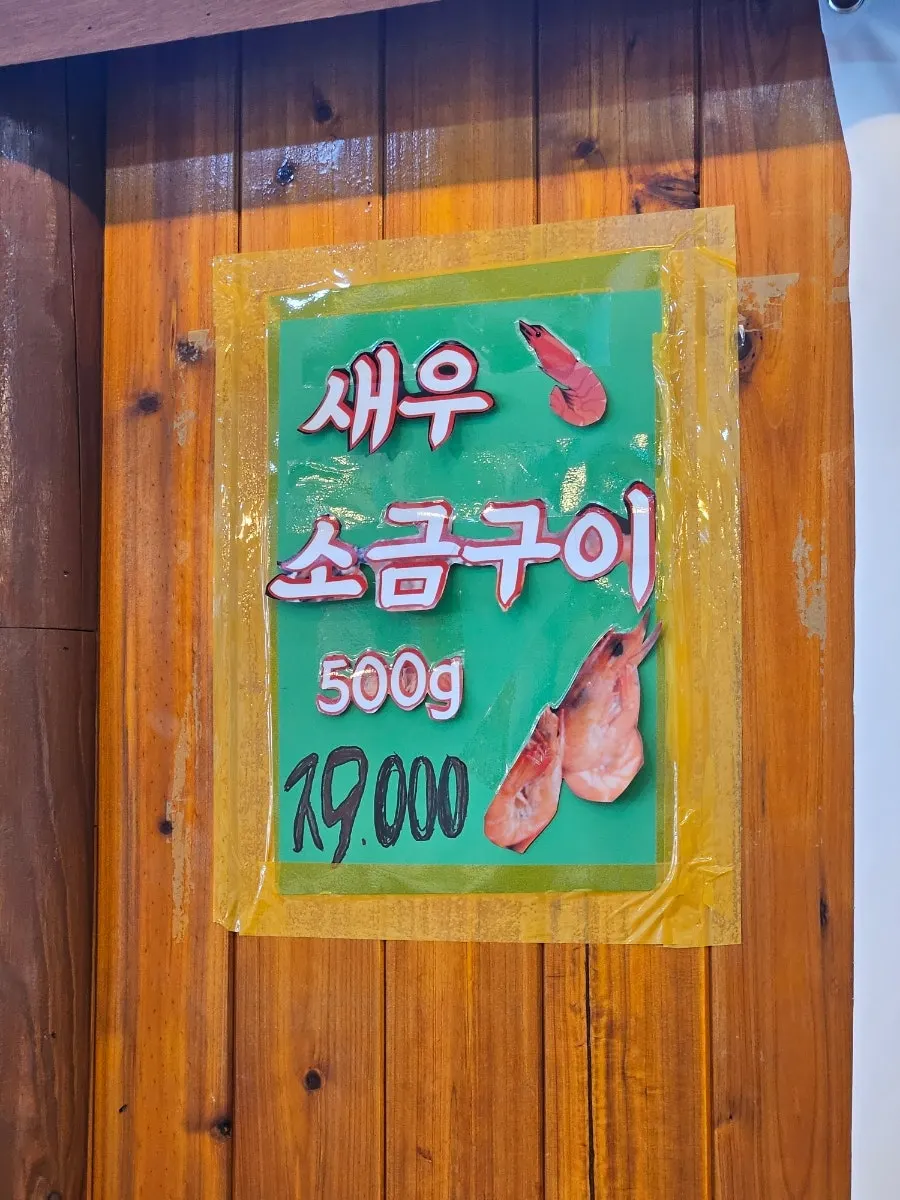 새우
소금구이
500g
29.000